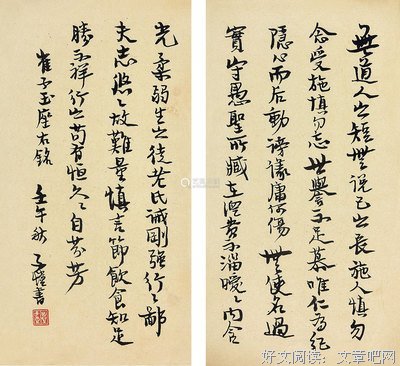 無道人之短無說己之長施人慎勿
念受施慎勿忘世譽不足慕唯仁為紀
隱心而后動謗議庸何傷無使名過
實守愚聖所臧在涅貴不淄曖〻內含
光柔弱生之徒老氏誡剛強行〻鄙
夫志悠〻故難量慎言節飲食知足
勝不祥行之苟有恒久〻自芬芳
崔子玉座右銘
壬午秋 子愷書
好文阅读：文章吧网